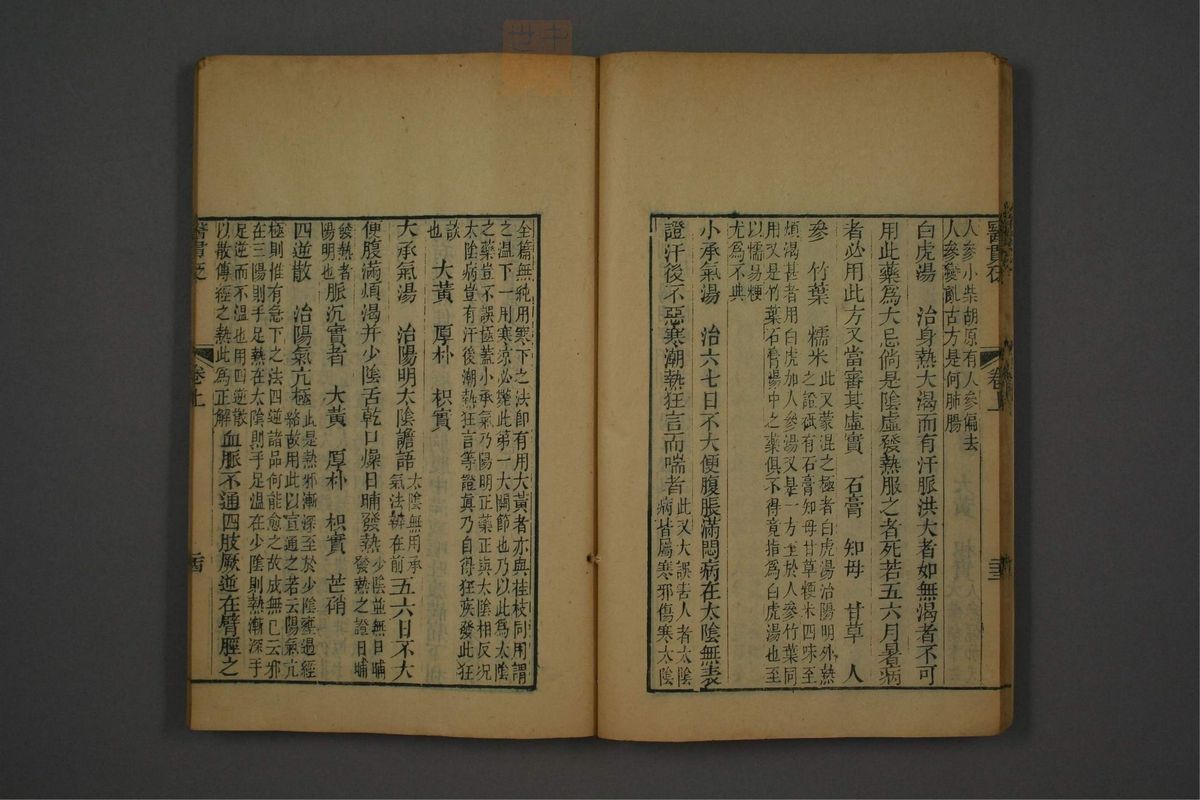 人參小柴胡原有人參偏去
人參變亂古方是何肺腸
白虎湯　治身熱大渴而有汗脈洪大者如無渴者不可
用此藥爲大忌倘是陰虛發熱服之者死若五六月暑病
者必用此方又當審其虛實　石膏　知母　甘草　人
參　竹葉　糯米
此又蒙混之極者白虎湯治陽明外熱
之證祗有石膏知母甘草粳米四味至
煩渴甚者用白虎加人參湯又是一方至於人參竹葉同
用又是竹葉石膏湯中之藥俱不得竟指爲白虎湯也至
以懦易粳
尤爲不典
小承氣湯　治六七日不大便腹脹滿悶病在太陰無表
證汗後不惡寒潮熱狂言而喘者
此又大誤害人者太陰
病皆屬寒邪傷寒太陰
醫貫砭
卷上
全篇無純用寒下之法卽有用大黃者亦與桂枝同用謂
之溫下一用寒涼必斃此第一大關節也乃以此爲太陰
之藥豈不誤極蓋小承氣乃陽明正藥正與太陰相反况
太陰病豈有汗後潮熱狂言等證眞乃自得狂疾發此狂
談
也
大黃　厚朴　枳實
大承氣湯　治陽明太陰譫語
太陰無用承
氣法辨在前
五六日不大
便腹滿煩渴并少陰舌乾口燥日晡發熱
少陰並無日晡
發熱之證日晡
發熱者
陽明也
脈沉實者　大黃　厚朴　枳實　芒硝
四逆散　治陽氣亢極
此是熱邪漸深至於少陰壅過經
絡故用此以宣通之若云陽氣亢
極則惟有急下之法四逆諸品何能愈之故成無己云邪
在三陽則手足熱在太陰則手足溫在少陰則熱漸深手
足逆而不溫也用四逆散
以散傳經之熱此爲正解
血脈不通四肢厥逆在臂脛之
醫貫砭
卷上